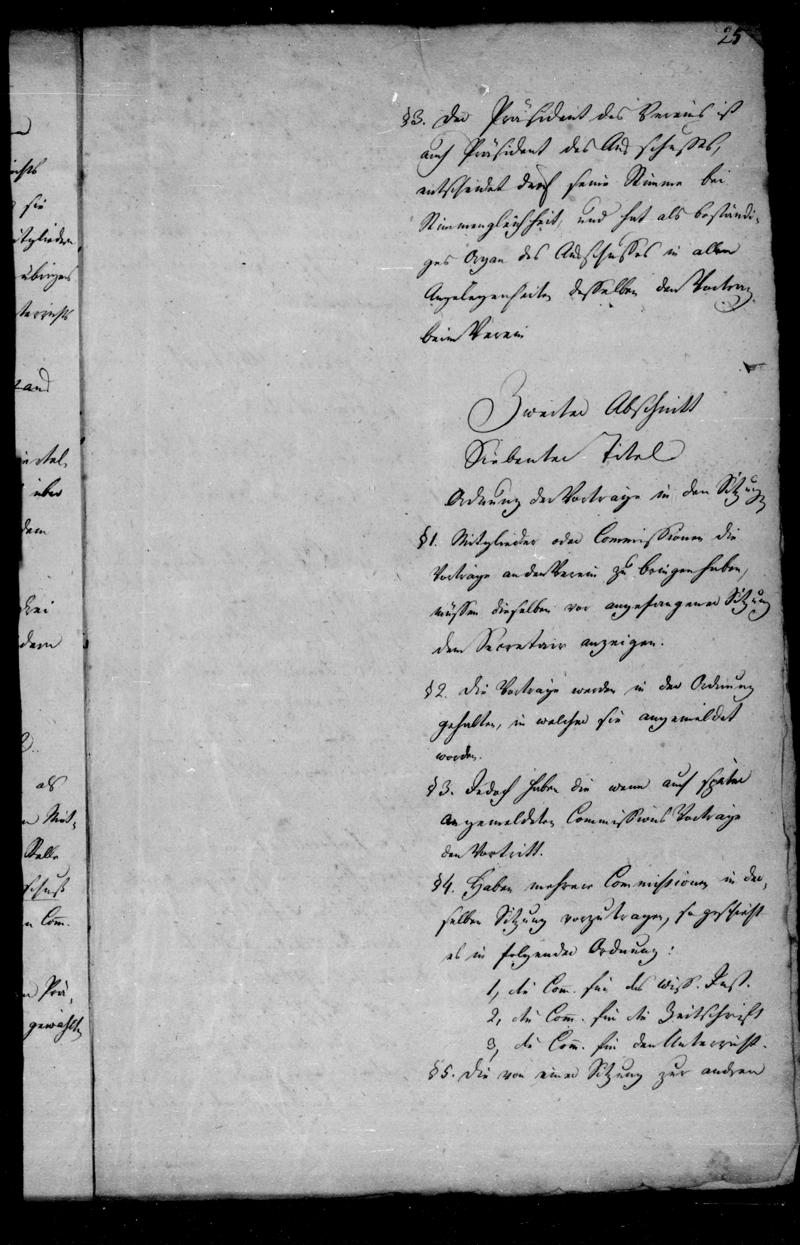 25
§3. Der Präsident des Vereins ist
auch Präsident des Ausschusses,
entscheidet durch seine Stimme bei
Stimmengleichheit, und hat als beständi-
ges Organ des Ausschusses in allen
Angelegenheiten desselben den Vortrag
beim Verein
Zweiter Abschnitt
Siebenter Titel
Ordnung der Vorträge in den Sitzungen
§1. Mitglieder oder Commissionen die
Vorträge an den Verein zu bringen haben,
müssen dieselben vor angefangener Sitzung
dem Secretair anzeigen.
§2. Die Vorträge werden in der Ordnung
gehalten, in welcher sie angemeldet
worden.
§3. Jedoch haben die wenn auch später
angemeldeten Commissions Vorträge
den Vortritt.
§4. Haben mehrere Commissionen in der-
selben Sitzung vorzutragen, so geschieht
es in folgender Ordnung:
1, die Com. für das wiss. Inst.
2, die Com̄. für die Zeitschrift
3, die Com̄. für den Unterricht.
§5. Die von einer Sitzung zur andern
sie
itglieder
übrigen
terrichts
and
über
dem
drei
dern
als
n Mit-
Stelle
schuß
n Com̄.
n Prä-
gewählt